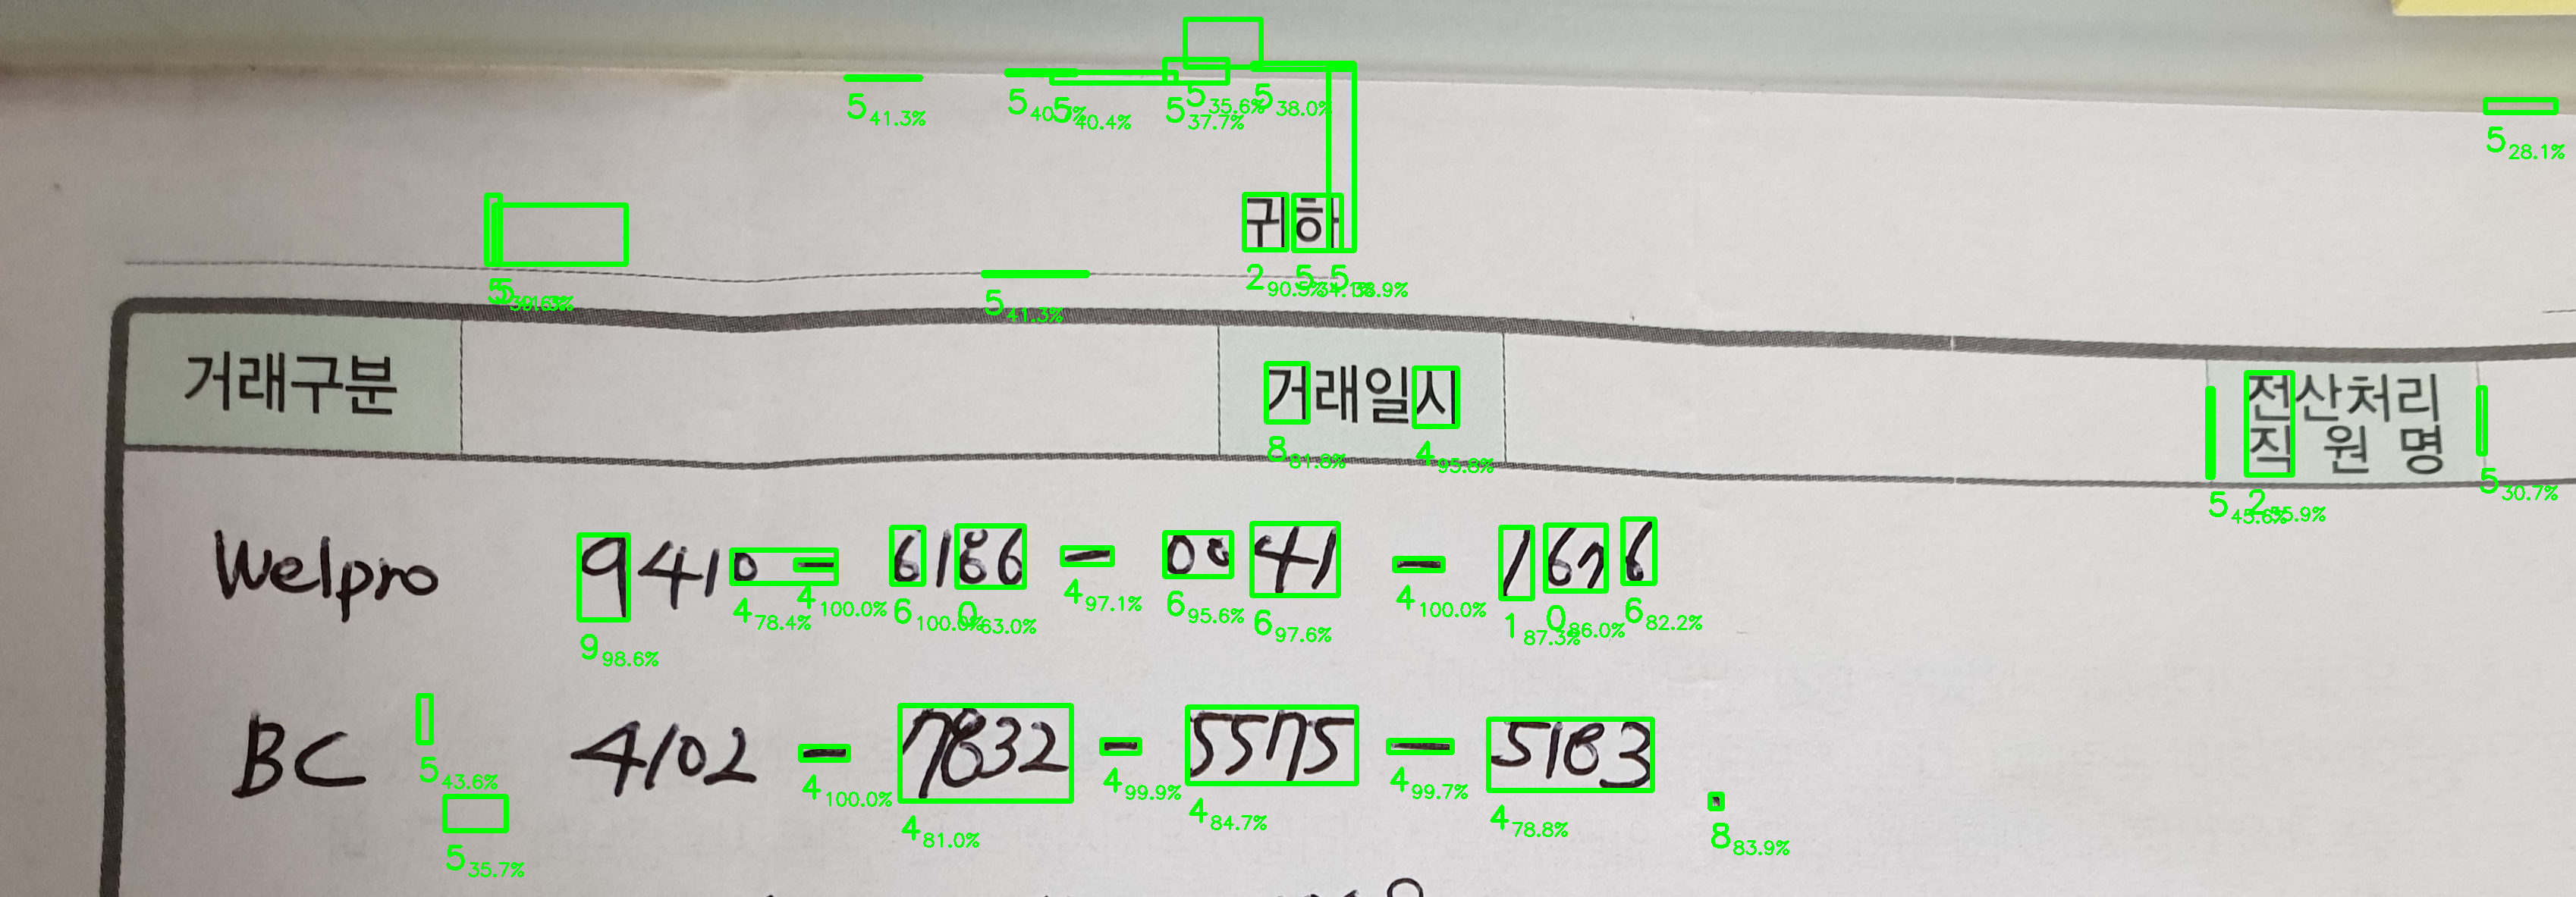 5 41.3%
5 40.4%
5 37.7%
5 35.6%
5 38.0%
5 28.1%
귀하
2 90.5%
5 41.3%
거래구분 거래일시 전산처리
직 원 명
8 81.8% 4 95.8%
5 45.6% 2 55.9% 5 30.7%
Welpro 9410 - 6186 - 0041 - 1676
9 98.6% 4 78.4% 4 100.0% 6 100.0% 0 63.0% 4 97.1% 6 95.6% 6 97.6% 4 100.0% 1 87.3% 0 86.0% 6 82.2%
BC 4102 - 7832 - 5575 - 5183
5 43.6% 4 100.0% 4 81.0% 4 99.9% 4 84.7% 4 99.7% 4 78.8% 8 83.9%
5 35.7%